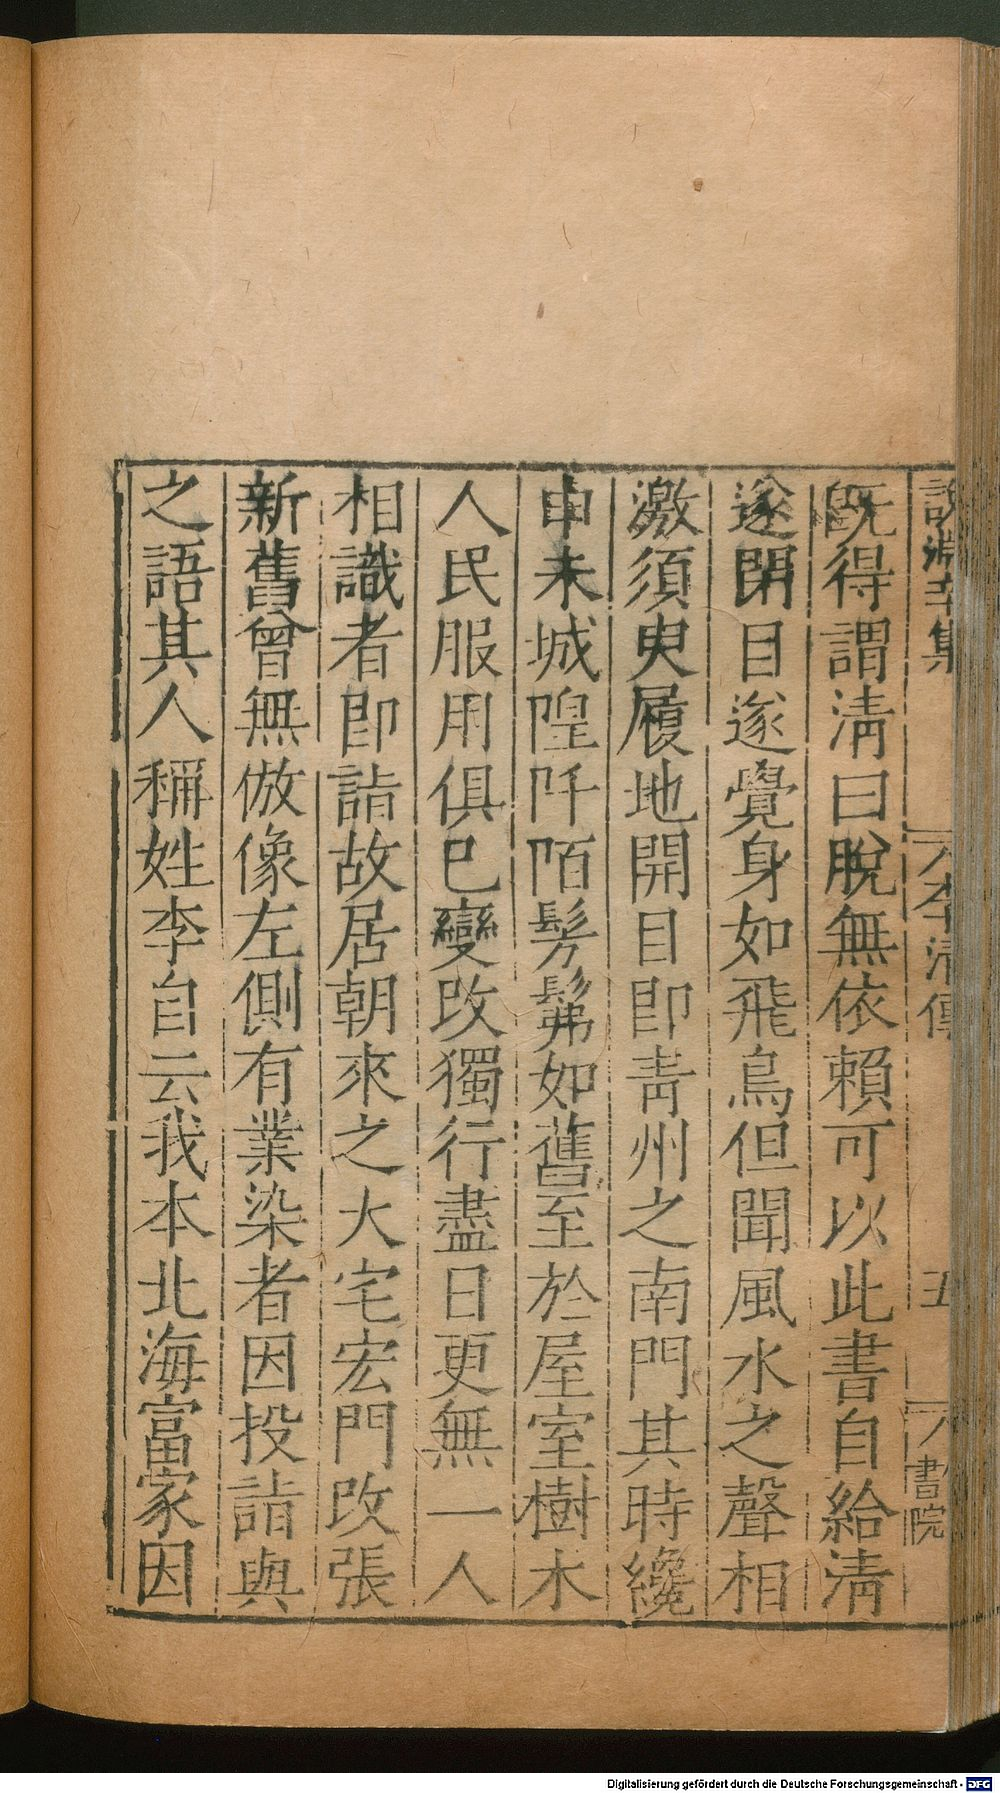 說淵辛集 李清傳 五 書院
旣得謂淸曰脫無依賴可以此書自給淸
遂閉目遂覺身如飛鳥但聞風水之聲相
激須臾履地開目卽靑州之南門其時纔
申未城隍阡陌髣髴如舊至於屋室樹木
人民服用俱已變改獨行盡日更無一人
相識者卽詣故居朝來之大宅宏門改張
新舊曾無倣像左側有業染者因投詣與
之語其人稱姓李自云我本北海富家因
Digitalisierung gefördert durch die Deutsche Forschungsgemeinschaft - DFG